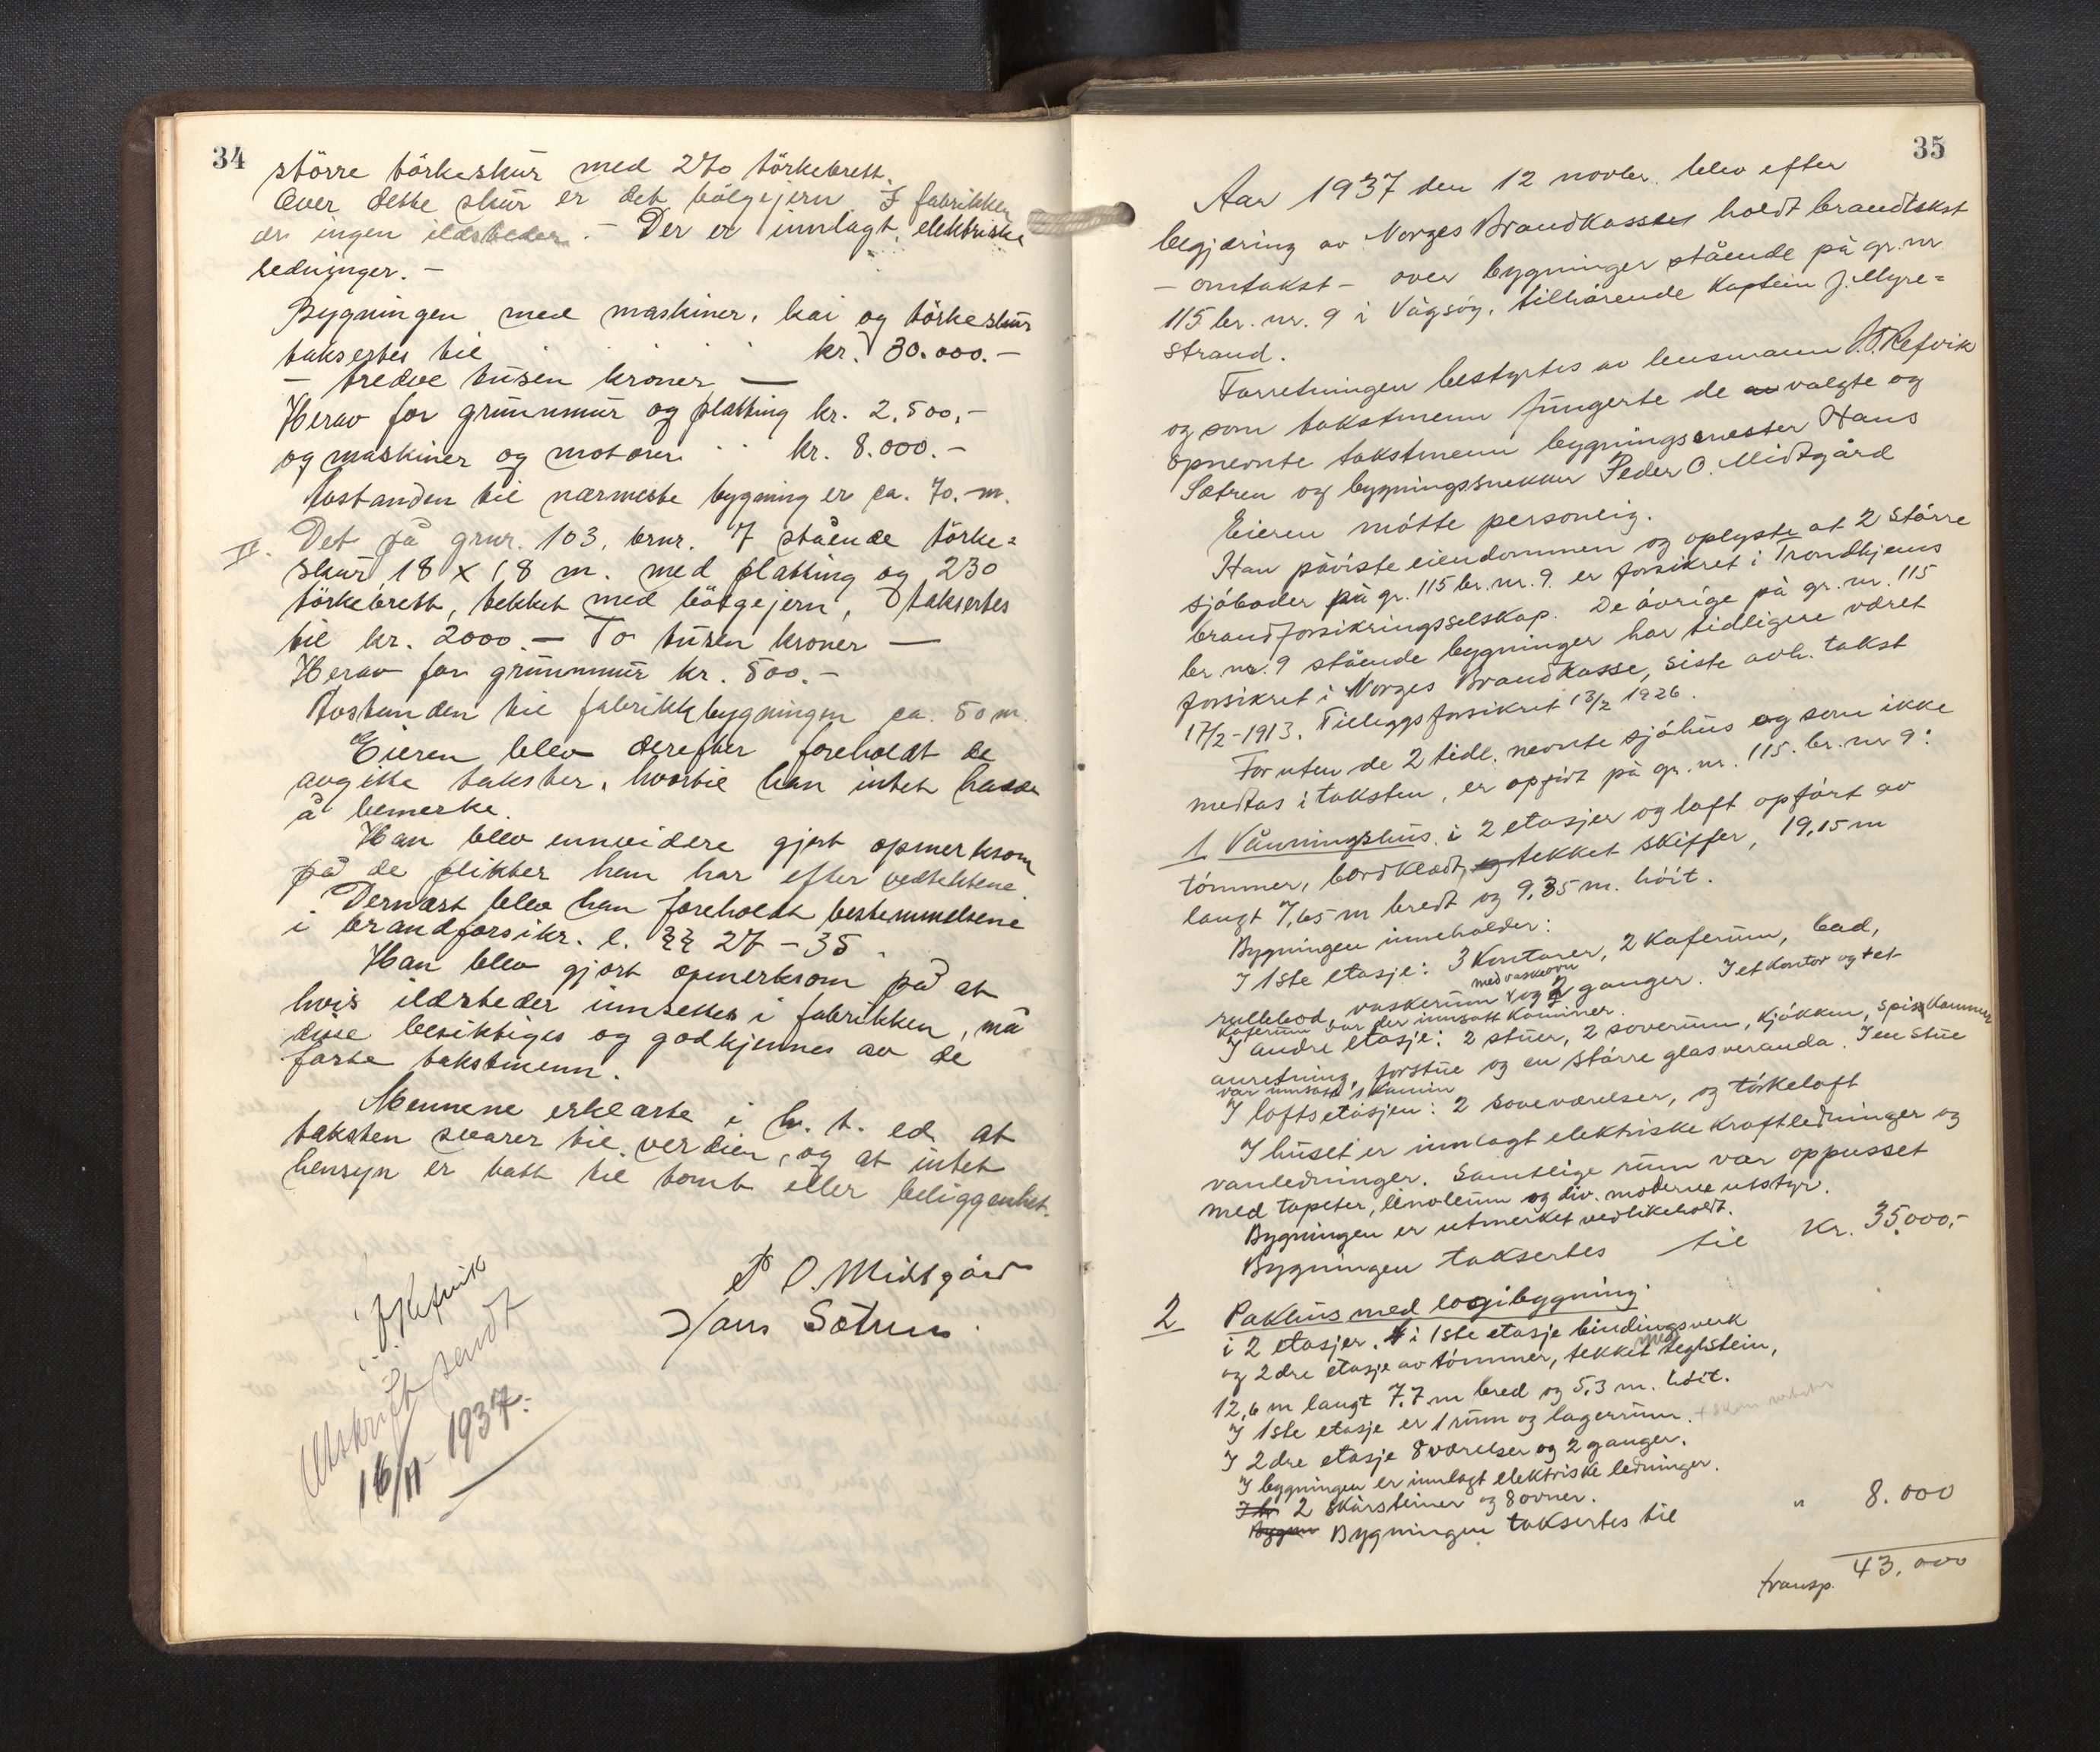 34
större törkeskur med 270 törkebrett.
Over dette skur er det bölgejern I fabrikken
er ingen ildsteder. – Der er innlagt elektriske
ledninger. –
Bygningen med maskiner, kai og törkeskur
taksertes til kr. 30.000.–
– tredve tusen kroner –
Herav for grunnmur og platting kr. 2,500.–
og maskiner og motorer kr. 8.000.–
Avstanden til nærmeste bygning er ca. 70.m.
II. Det på grnr. 103, brnr. 7 stående törke=
skur 18 x 18 m. med platting og 230
törkebrett, tekket med bölgejern, taksertes
til kr. 2000.– To tusen kroner –
Herav for grunnmur kr. 500.–
Avstanden til fabrikkbygningen ca. 50 m.
Eieren blev derefter foreholdt de
avgitte takster, hvortil han intet hadde
å bemerke.
Han blev ennvidere gjort opmerksom
på de plikter han har efter vedtektene.
Dernæst blev han foreholdt bestemmelsene
i brandforsikr. l. §§ 27 – 35.
Han blev gjort opmerksom på at
hvis ildsteder innsettes i fabrikken, må
disse besiktiges og godkjennes av de
faste takstmenn.
Mennene erklærte i h. t. ed at
taksten svarer til verdien, og at intet
hensyn er tatt til tomt eller beliggenhet.
P O. Midtgård
Hans Sætren.
J. Refvik
Utskrift sendt
16/11 – 1937.
35
Aar 1937 den 12 novbr. blev efter
begjæring av Norges Brandkasse holdt brandtakst
– omtakst – over bygninger stående på gr. nr
115 br. nr. 9 i Vågsöy, tilhörende Kaptein J. Myre=
strand.
Forretningen bestyrtes av lensmann Refvik
og som takstmenn fungerte de av valgte og
opnevnte takstmenn bygningsmester Hans
Sætren og bygningssnekker Peder O. Midtgård
Eieren mötte personlig.
Han påviste eiendommen og oplyste at 2 större
sjöboder på gr. 115 br. nr. 9. er forsikret i Trondhjems
brandforsikringsselskap. De övrige på gr. nr. 115
br. nr. 9 stående bygninger har tidligere været
forsikret i Norges Brandkasse, siste avh. takst
17/2-1913. Tilleggsforsikret 13/2 1926.
Foruten de 2 tidl. nevnte sjöhus og som ikke
medtas i taksten, er opfört på gr. nr. 115. br. nr 9:
1 Våningshus i 2 etasjer og loft opfört av
tömmer, bordklædt, og tekket skiffer, 19,15 m
langt 7,65 m bredt og 9,35 m. höit.
Bygningen inneholder:
I 1ste etasje: 3 Kontorer, 2 Kaferum, bad,
med vaskeovn
rullebod, vaskerum og 2 ganger. I et kontor og 1 et
Kaferum var der innsatt Kaminer.
I andre etasje: 2 stuer, 2 soverum, kjökken, spiskammer
anretning, forstue og en större glasveranda. I en stue
var innsatt 1 Kamin
I loftsetasjen: 2 soveværelser, og törkeloft
I huset er innlagt elektriske kraftledninger og
vanledninger. Samtlige rum var oppusset
med tapeter, linoleum og div. moderne utstyr.
Bygningen er utmerket vedlikeholdt.
Bygningen taksertes til Kr. 35.000,-
2 Pakhus med losjibygning
i 2 etasjer. i 1ste etasje bindingsverk
og 2dre etasje av tömmer, tekket med teglstein,
12,6 m langt 7,7 m bred og 5,3 m. höit.
I 1ste etasje er 1 rum og lagerrum.
I 2dre etasje 8 værelser og 2 ganger.
I bygningen er innlagt elektriske ledninger.
2 skorsteiner og 8 ovner.
Bygningen taksertes til " 8.000
transp. 43.000